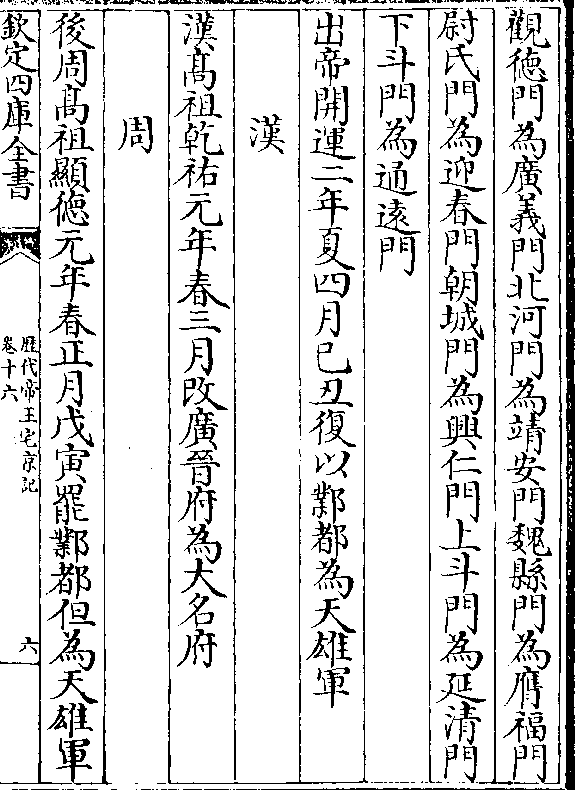 觀德門為廣義門北河門為靖安門魏縣門為膺福門
尉氏門為迎春門朝城門為興仁門上斗門為延清門
下斗門為通遠門
出帝開運二年夏四月己丑復以鄴都為天雄軍
漢
漢髙祖乾祐元年春三月改廣晉府為大名府
周
後周髙祖顯德元年春正月戊寅罷鄴都但為天雄軍
欽定四庫全書
歷代帝王宅京記
卷十六
六